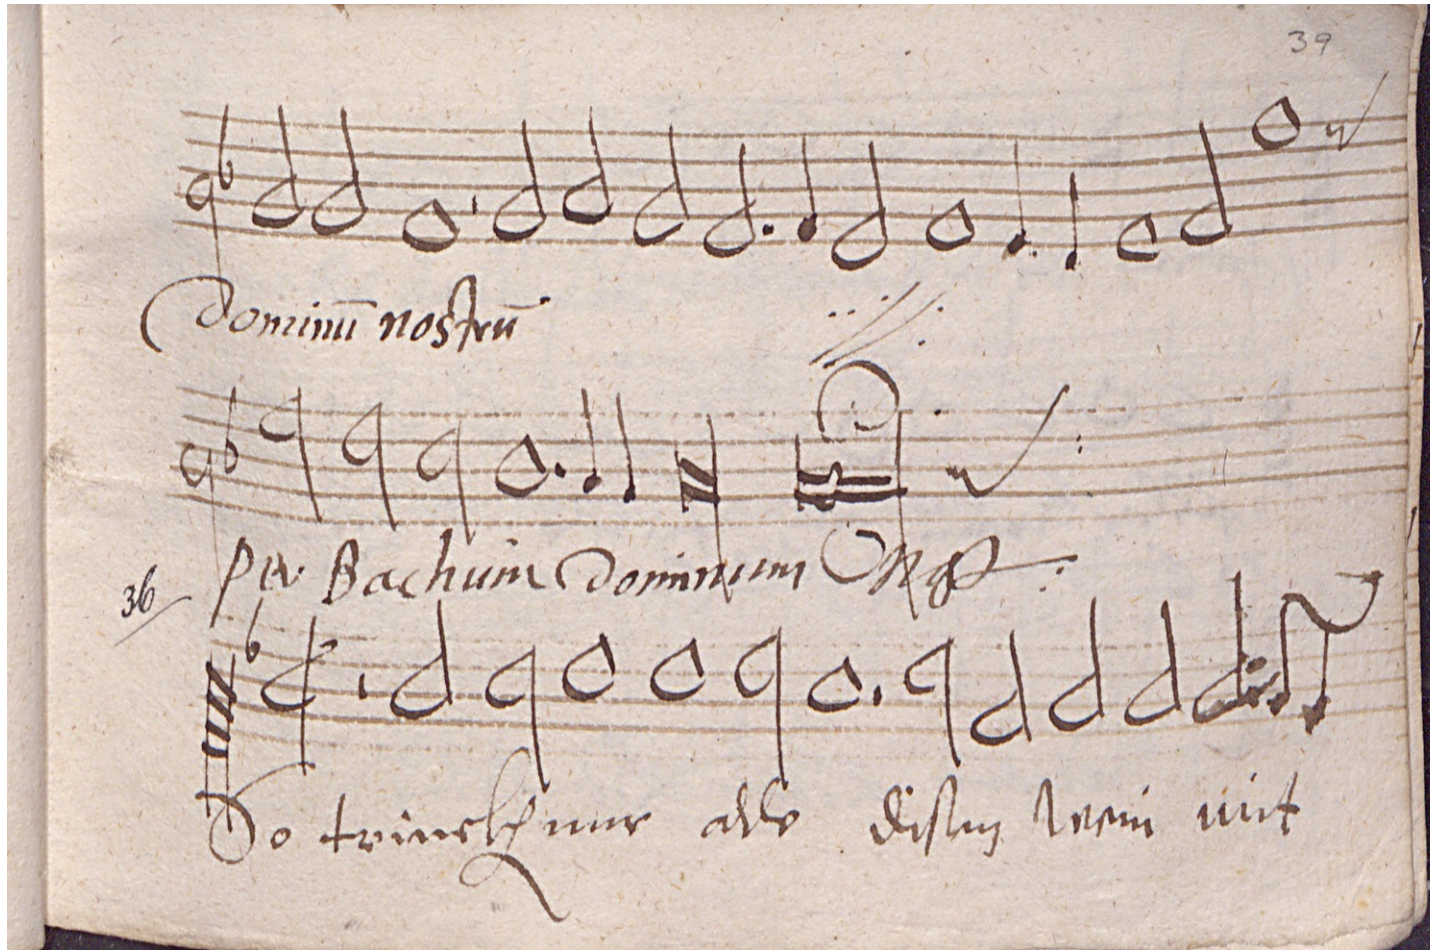 39
Dominū nostrū
Per Bachum Dominum
36
So trinckh nur alle disen wein mit